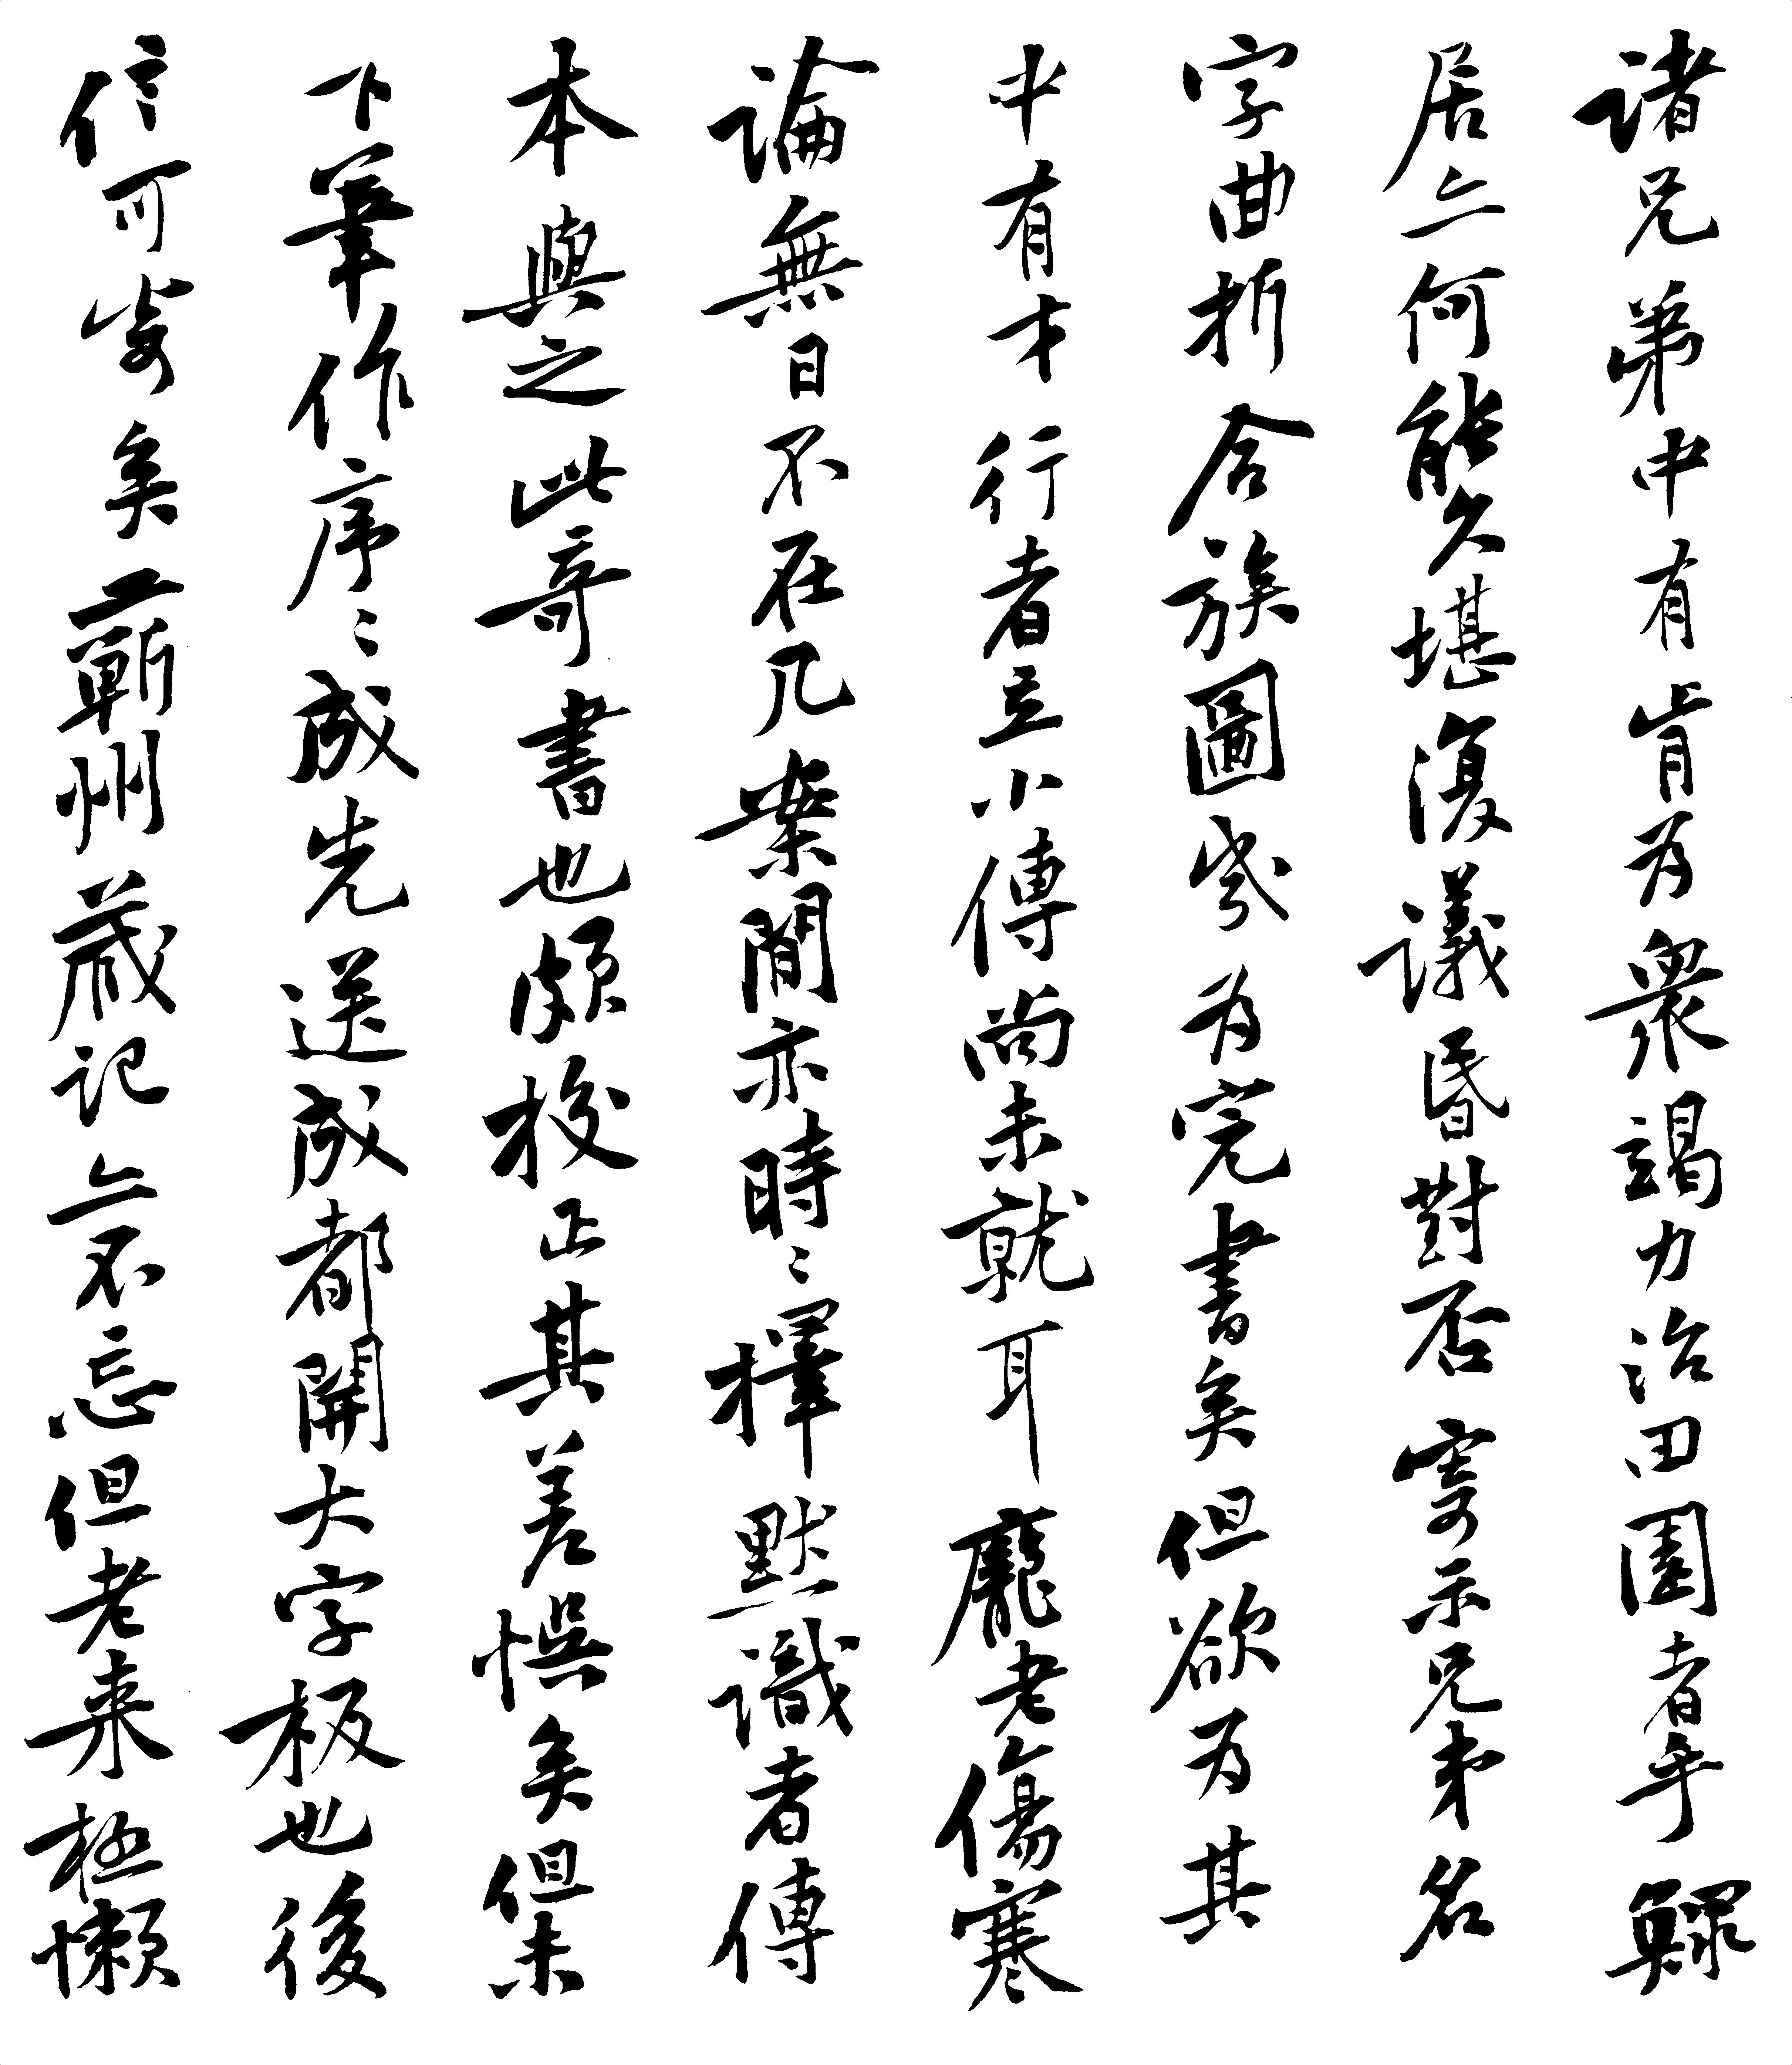 诸兄弟中有肯为衆竭力治田園者乎鰥
居亦何能久堪復議昏對否寄示兄弟名
字曲折合族圖岁为完書矣但欲为其
中有才行者立小傳尚未就耳龐老傷寒
論無日不在几案間亦時〻擇默識者傳
本與之此奇書也頗校正其差悮矣但未
下筆作序〻成先送成都開大字板也後
信可寄矣蕲州藏记亦不忘但老来極懒